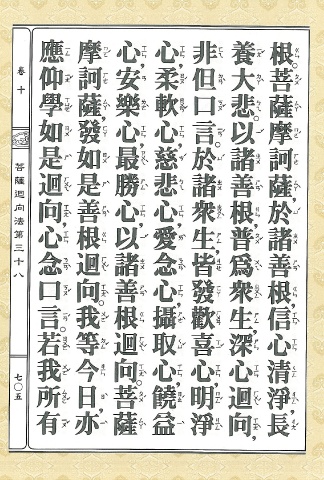 根。菩薩摩訶薩，於諸善根，信心清淨，長
養大悲。以諸善根，普為眾生，深心迴向，
非但口言。於諸眾生，皆發歡喜心，明淨
心，柔軟心，慈悲心，愛念心，攝取心，饒益
心，安樂心，最勝心，以諸善根迴向。菩薩
摩訶薩，發如是善根迴向。我等今日，亦
應仰學如是迴向，心念口言。若我所有
卷十
菩薩迴向法第三十八
七〇五